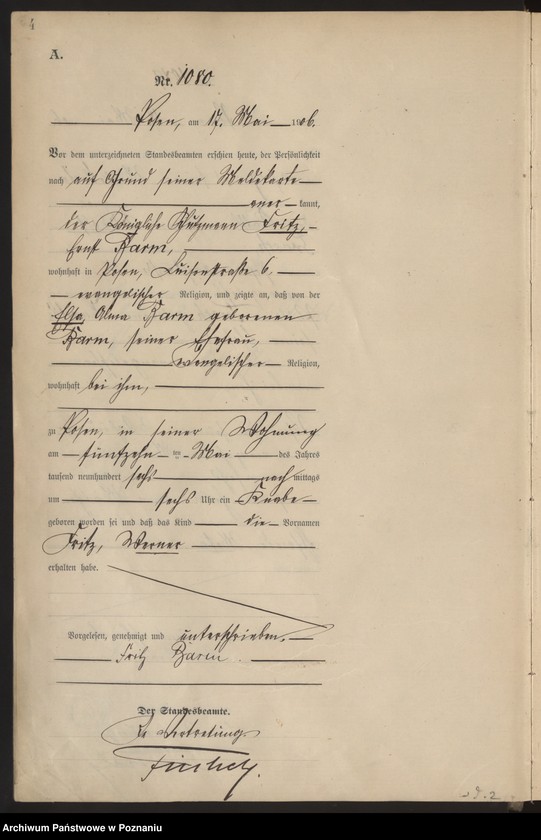 4
A.
Nr. 1080.
Posen, am 17. Mai 1906.
Vor dem unterzeichneten Standesbeamten erschien heute, der Persönlichkeit
nach auf Grund seiner Meldekarte
aner kannt,
der Königliche Schutzmann Fritz,
Ernst Barm,
wohnhaft in Posen, Luisenstraße 6,
evangelischer Religion, und zeigte an, daß von der
Elsa, Alma Barm geborenen
Karm, seiner Ehefrau,
evangelischer Religion,
wohnhaft bei ihm,
zu Posen, in seiner Wohnung
am fünfzehn ten Mai des Jahres
tausend neunhundert sechs nach mittags
um sechs Uhr ein Knabe
geboren worden sei und daß das Kind die Vornamen
Fritz, Werner
erhalten habe.
Vorgelesen, genehmigt und unterschrieben.
Fritz Barm.
Der Standesbeamte.
In Vertretung
Archiwum Państwowe w Poznaniu